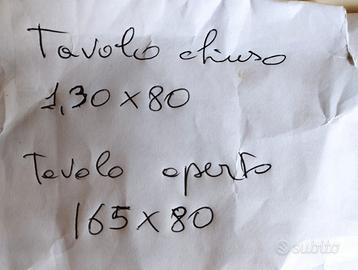 Tavolo chiuso
1,30 x 80
Tavolo aperto
165 x 80
subito